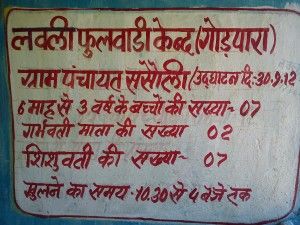 लवली फुलवाडी केन्द्र (गोडपारा)
ग्राम पंचायत ससौली (उद्घाटन दि:30.9.12
6 माह से 3 वर्ष के बच्चो की सख्या- 07
गर्भवती माता की संख्या 02
शिशुवती की संख्या- 07
खुलने का समय- 10.30 से 4 बजे तक